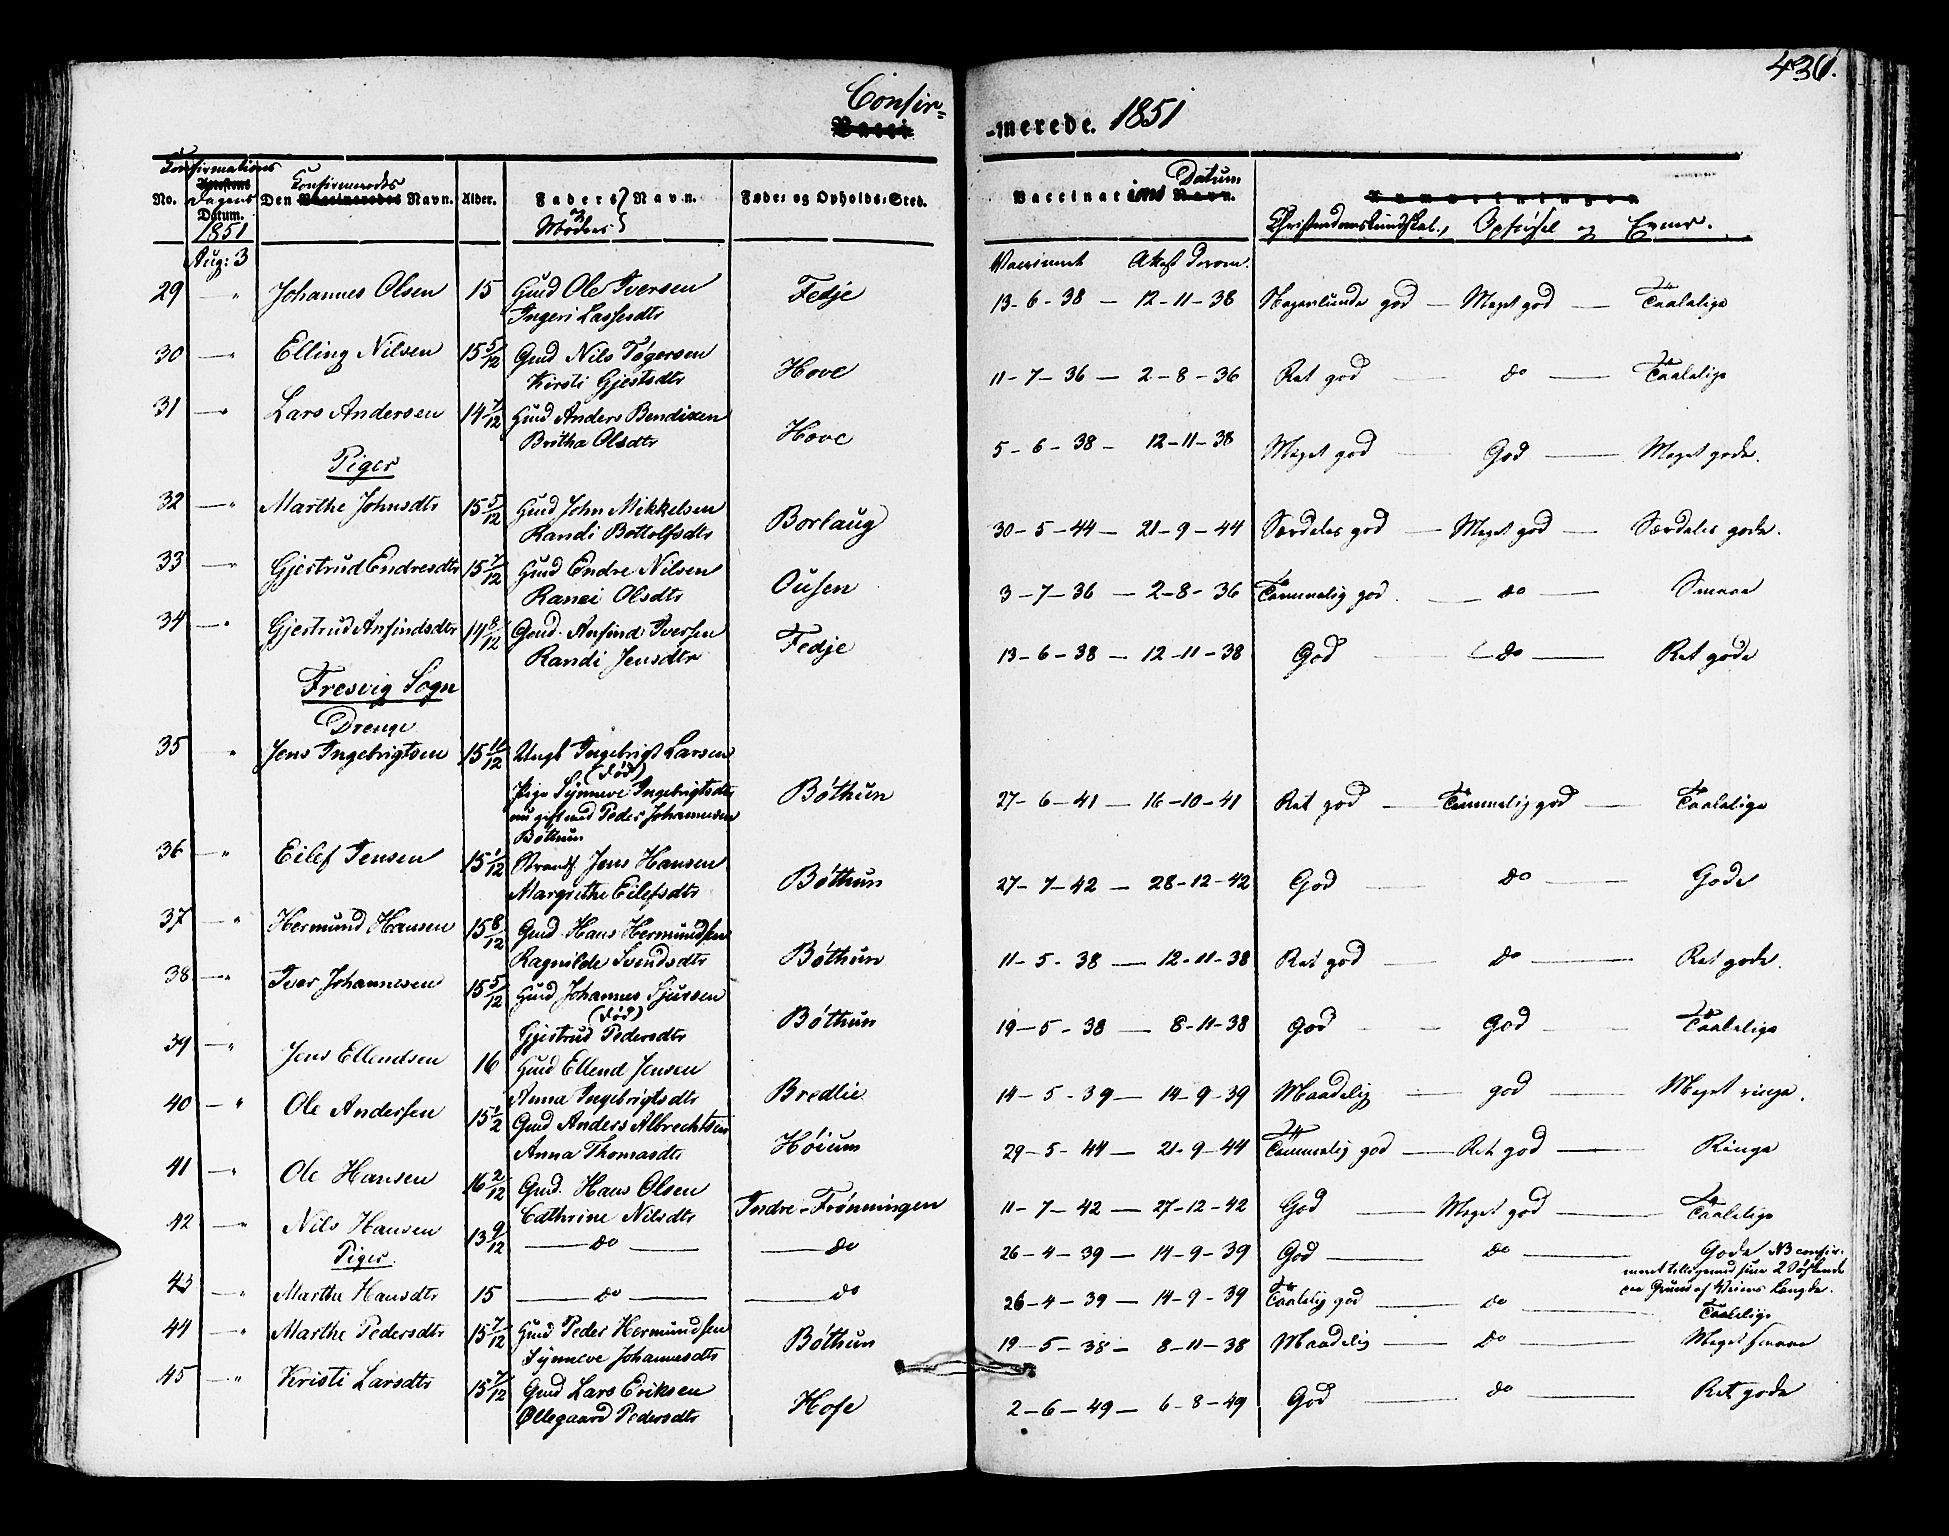 436.
Confir=
Vacci
-merede. 1851
No.
Confirmations
Dagens
Datum.
1851
Confirmeredes
Den Vaccineredes Navn.
Alder.
Faders og Moders Navn.
Føde- og Opholds-Sted.
Vaccinations Datum
Navn.
Anmærkninger.
Christendomskundskab, Opførsel og Evner.
Aug: 3
Vaccineret Attest derom.
29 — " Johannes Olsen 15 Gmd Ole Iversen Fedje 13-6-38 — 12-11-38 Nogenlunde god — Meget god — Taalelige
Ingeri Lassesdtr
30 — " Elling Nilsen 15 5/12 Gmd Nils Tøgersen Hove 11-7-36 — 2-8-36 Ret god — do — Taalelige
Kirsti Gjestsdtr
31 — " Lars Andersen 14 7/12 Gmd Anders Bendixen Hove 5-6-38 — 12-11-38 Meget god — God — Meget gode.
Britha Olsdtr
Piger
32 — " Marthe Johnsdtr 15 5/12 Gmd John Mikkelsen Borlaug 30-5-44 — 21-9-44 Særdeles god — Meget god — Særdeles gode.
Randi Bottolfsdtr
33 — " Gjertrud Endresdtr 15 7/12 Gmd Endre Nilsen Ousen 3-7-36 — 2-8-36 Temmelig god — do — Smaae
Ranei Olsdtr
34 — " Gjertrud Anfindsdtr 14 8/12 Gmd. Anfind Iversen Fedje 13-6-38 — 12-11-38 God — do — Ret gode
Randi Jensdtr
Fresvig Sogn
Drenge
35 " Jens Ingebrigtsen 15 11/12 Ungk Ingebrigt Larsen Bøthun 27-6-41 — 16-10-41 Ret god — Temmelig god — Taalelige
(død)
Pige Synneve Ingebrigtsdtr
nu gift med Peder Johannesen
Bøthun
36 — " Eilef Jensen 15 1/12 Strands. Jens Hansen Bøthun 27-7-42 — 28-12-42 God — do — Gode
Margrethe Eilefsdtr
37 — " Hermund Hansen 15 8/12 Gmd. Hans Hermundsen Bøthun 11-5-38 — 12-11-38 Ret god — do — Ret gode.
Ragnilde Svendsdtr
38 — " Iver Johannesen 15 5/12 Gmd Johannes Sjursen Bøthun 19-5-38 — 8-11-38 God — God — Taalelige
(død)
Gjertrud Pedersdtr
39 — " Jens Ellendsen 16 Gmd Ellend Jensen Bredlie 14-5-39 — 14-9-39 Maadelig — god — Meget ringe.
Anna Ingebrigtsdtr
40 — " Ole Andersen 15 1/2 Gmd Anders Albrechtsen Høium 29-5-44 — 21-9-44 Temmelig god — Ret god — Ringe
Anna Thomasdtr
41 " Ole Hansen 16 2/12 Gmd. Hans Olsen Indre-Frønningen 11-7-42 — 27-12-42 God — Meget god — Taalelige
Cathrine Nilsdtr
42 — " Nils Hansen 13 9/12 — do — — do 26-4-39 — 14-9-39 God — do — Gode NB confir-
meret tilligemed sine 2 Søskende
paa Grund af Veiens Længde.
Piger.
43 — " Marthe Hansdtr 15 — do — do 26-4-39 — 14-9-39 Taalelig god — do — Taalelige
44 — " Marthe Pedersdtr 15 7/12 Gmd Peder Hermundsen Bøthun 19-5-38 — 8-11-38 Maadelig — do — Meget smaae
Synneve Johannesdtr
45 — " Kristi Larsdtr 15 7/12 Gmd Lars Eriksen Hofe 2-6-49 — 6-8-49 God — do — Ret gode
Øllegaard Pedersdtr